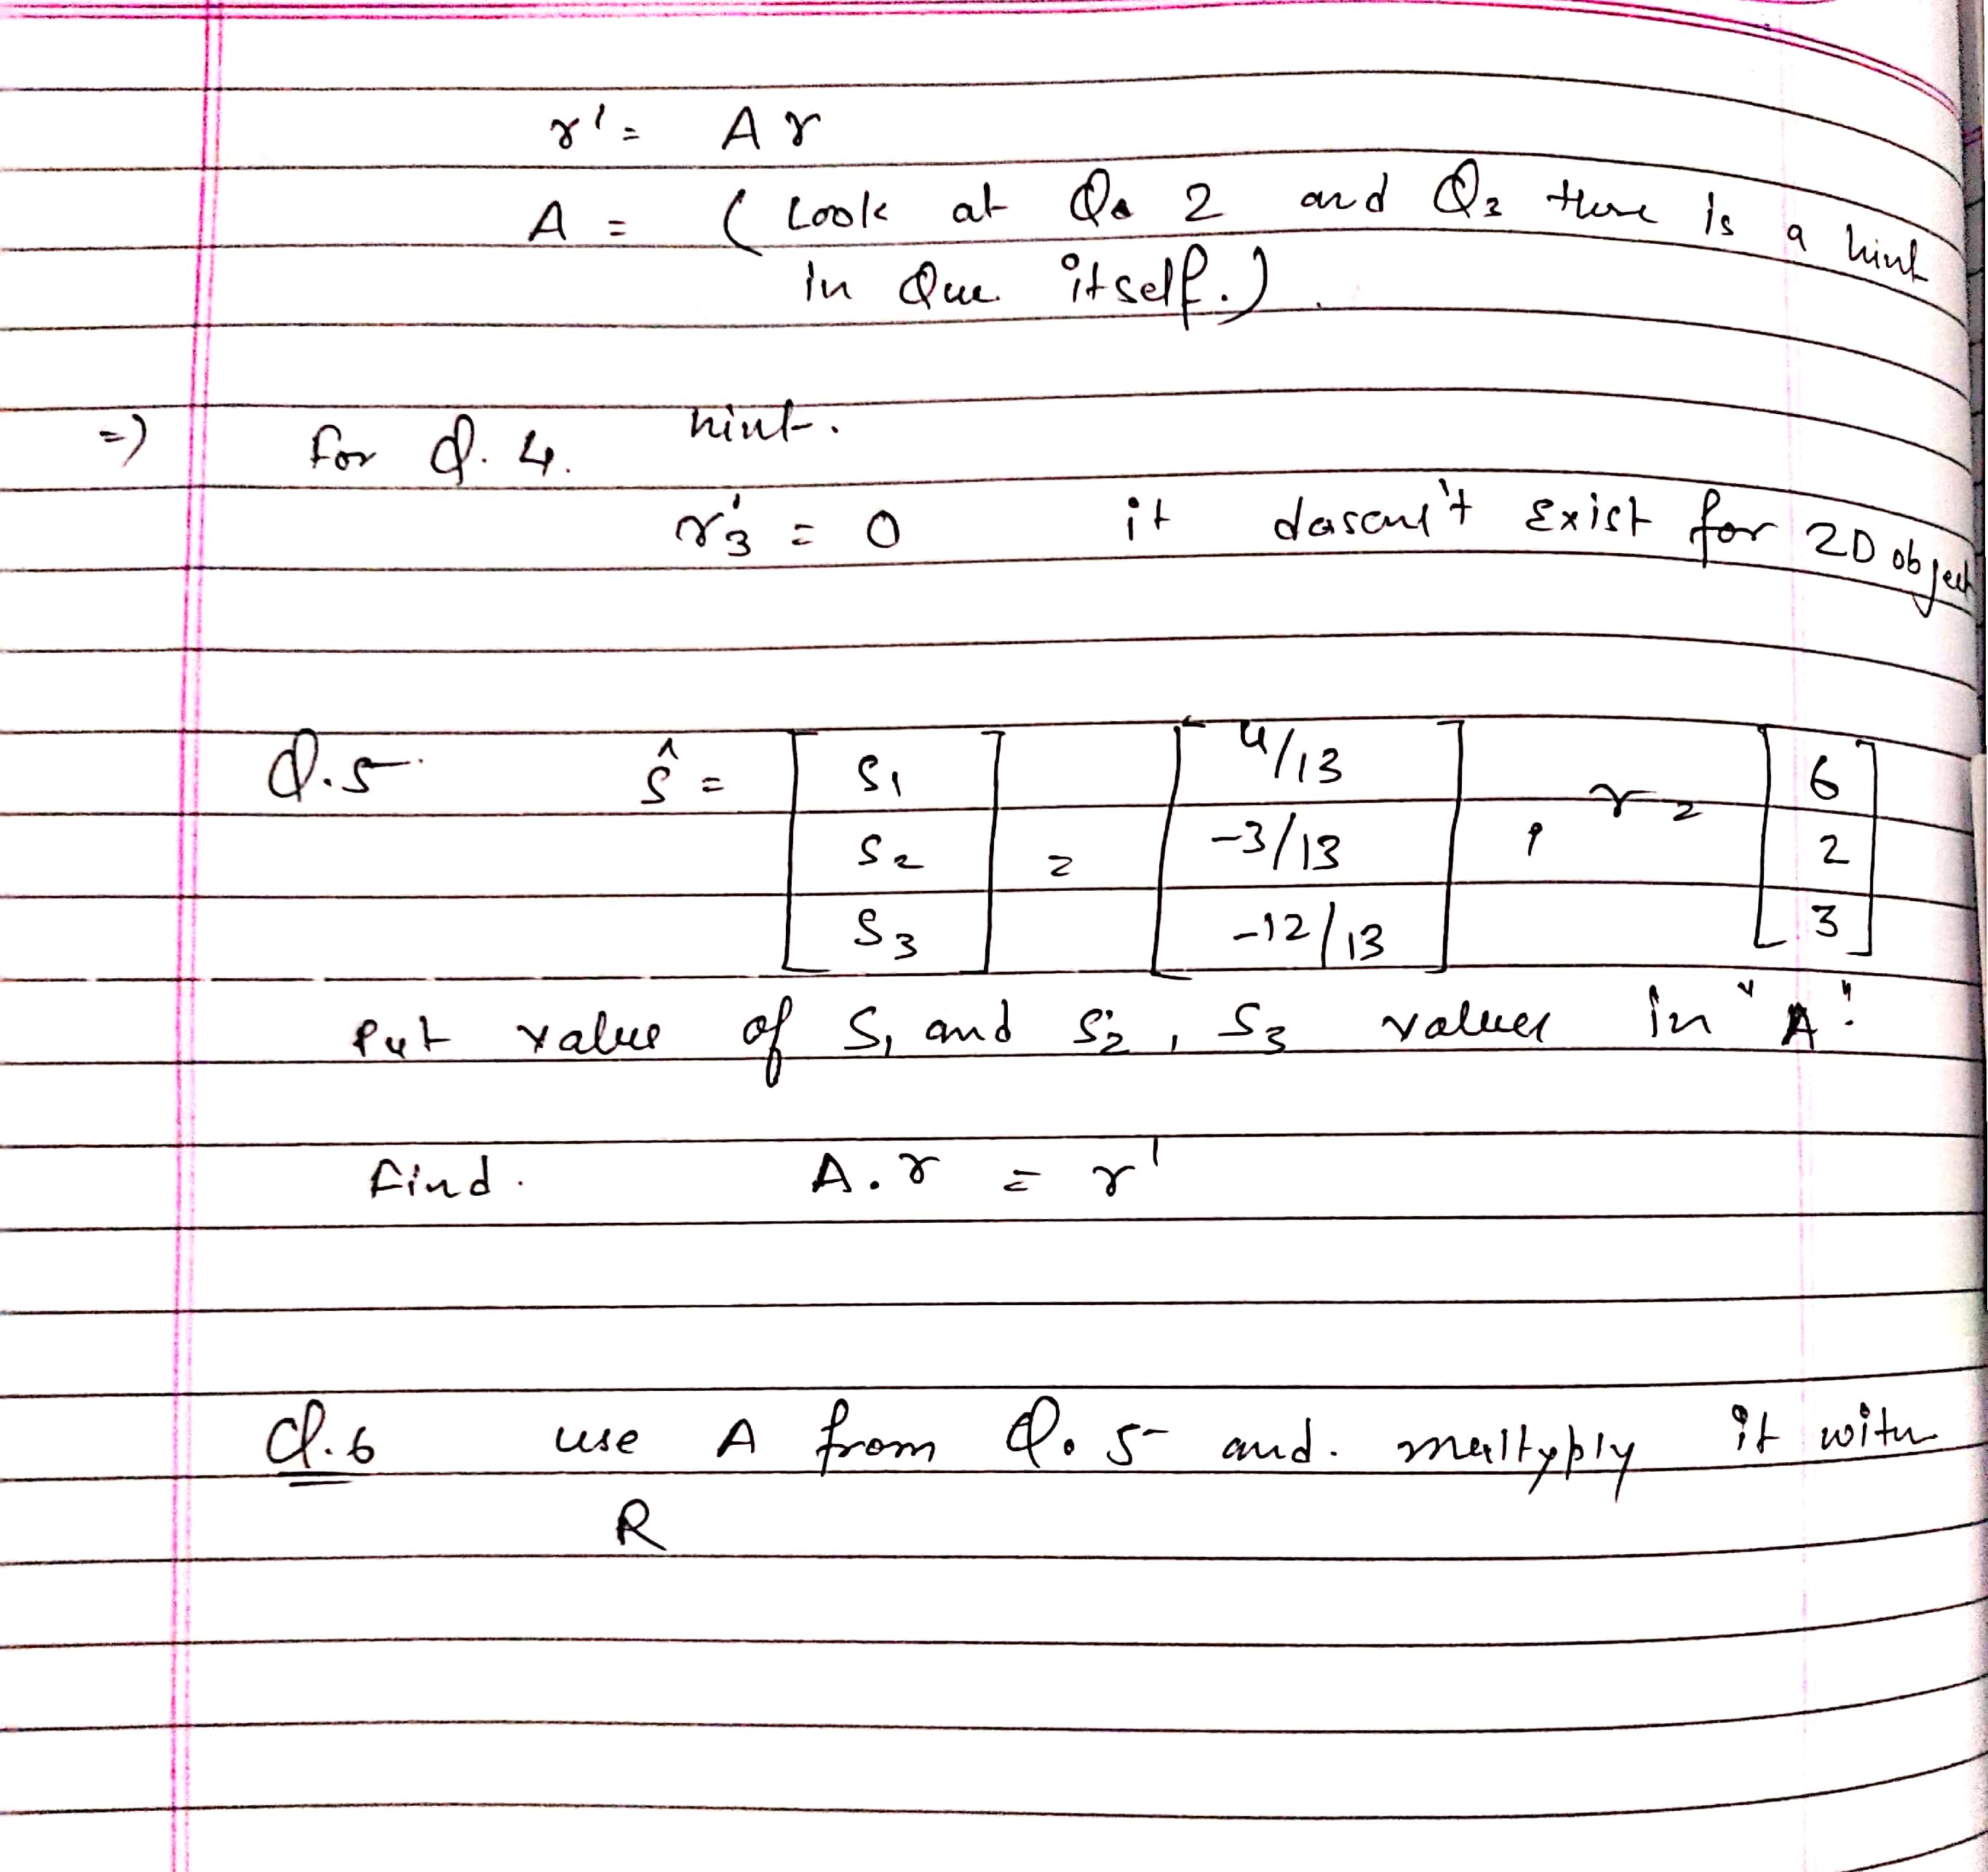 r' = A r
A = ( Look at Q. 2 and Q3 there is a hint
in Que itself.).
=) for Q. 4. hint.
r'3 = 0 it dosen't Exist for 2D object
Q.5. ŝ = [ S1 S2 S3 ] = [ 4/13 -3/13 -12/13 ] , r = [ 6 2 3 ]
Put value of S1 and S2, S3 values in "A".
find. A.r = r'
Q.6 use A from Q.5 and. multyply it with
R